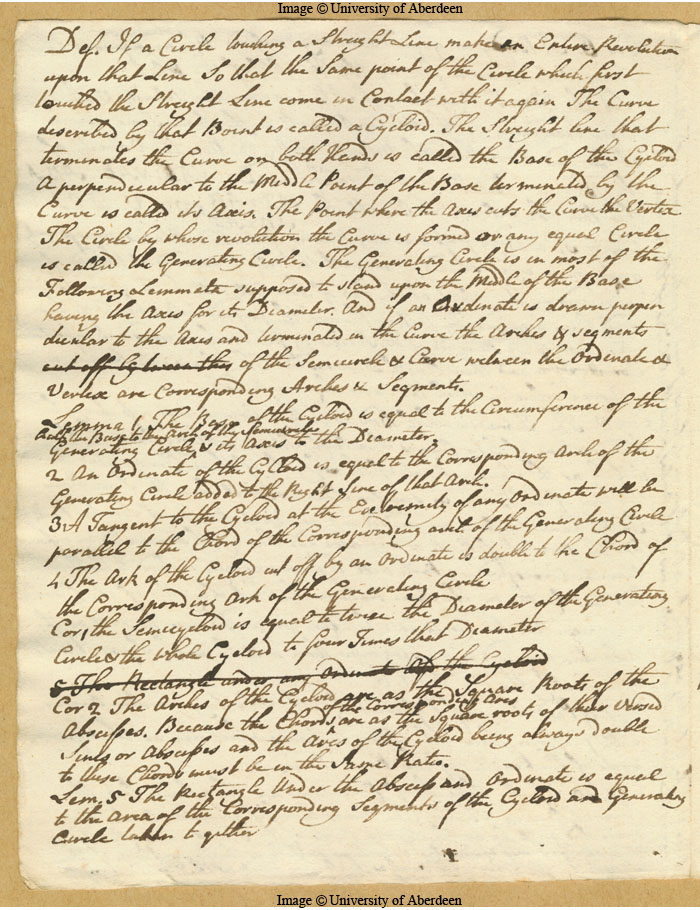 Image © University of Aberdeen
Def. If a Circle touching a Streight Line make an Entire Revolution
upon that Line So that the Same point of the Circle which first
touched the Streight Line come in Contact with it again The Curve
described by that Point is called a Cycloid. The Streight line that
terminates the Curve on both Hands is called the Base of the Cycloid
A perpendicular to the Middle Point of the Base terminated by the
Curve is called its Axis. The Point where the Axis cuts the Curve the Vertex
The Circle by whose revolution the Curve is formed or any equal Circle
is called the Generating Circle. The Generating Circle is in most of the
Following Lemmata supposed to stand upon the Middle of the Base
having the Axis for its Diameter. And if an Ordinate is drawn perpen
dicular to the Axis and terminated in the Curve the Arches & segments
cut off between this of the Semicircle & Curve between the Ordinate &
Vertex are Corresponding Arches & Segments.
Lemma 1. The Base of the Cycloid is equal to the Circumference of the
half the Base to the Arch of the Semicircle
Generating Circle & its Axis to the Diameter.
2 An Ordinate of the Cycloid is equal to the Corresponding Arch of the
Generating Circle added to the Right Sine of that Arch.
3 A Tangent to the Cycloid at the Extremity of any Ordinate will be
parallel to the Chord of the Corresponding arch of the Generating Circle
4 The Ark of the Cycloid cut off by an Ordinate is double to the Chord of
the Corresponding Ark of the Generating Circle
Cor 1 the Semicycloid is equal to twice the Diameter of the Generating
Circle & the whole Cycloid to four Times that Diameter
5 The Rectangle under any Ordinate of the Cycloid
Cor 2 The Arches of the Cycloid are as the Square Roots of the
Abscisses. Because the Chords of the Corresponding Arcs are as the Square roots of their Versed
Sines or Abscisses and the Arcs of the Cycloid being always double
to these Chords must be in the Same Ratio.
Lem. 5 The Rectangle Under the Absciss and Ordinate is equal
to the Area of the Corresponding Segments of the Cycloid and Generating
Circle taken together
Image © University of Aberdeen